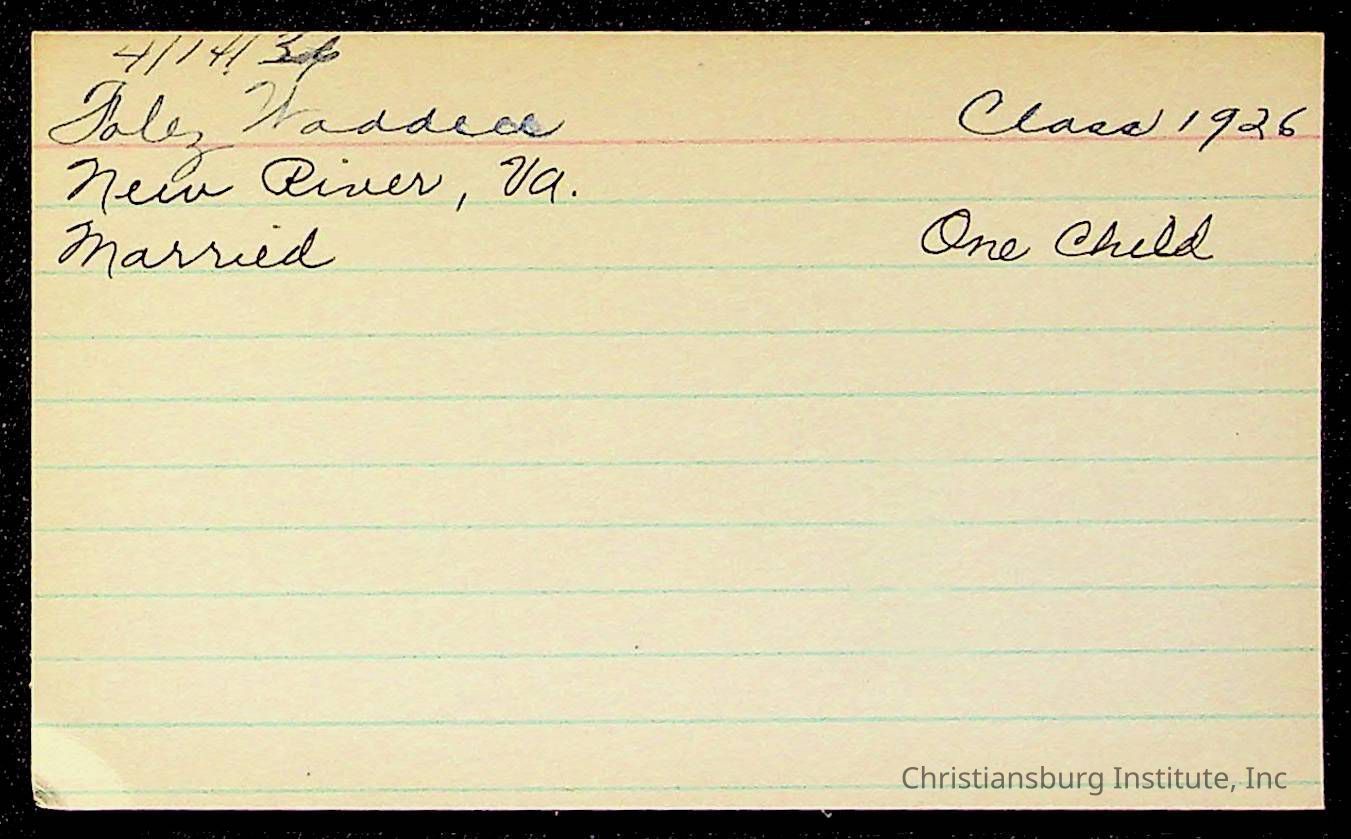 4/14/36
Foley Waddell Class 1926
New River, Va.
Married One Child
Christiansburg Institute, Inc